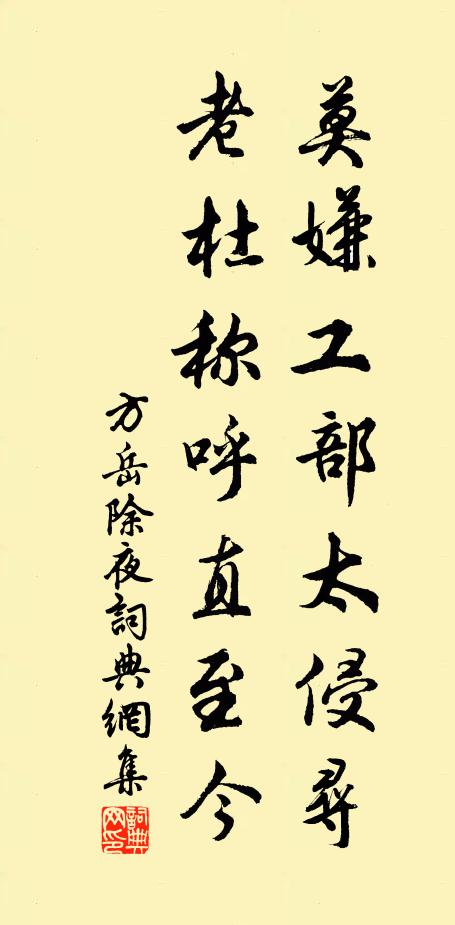 莫嫌工部太侵尋
老杜称呼直至今
方岳除夜詞典網集
詞典網印